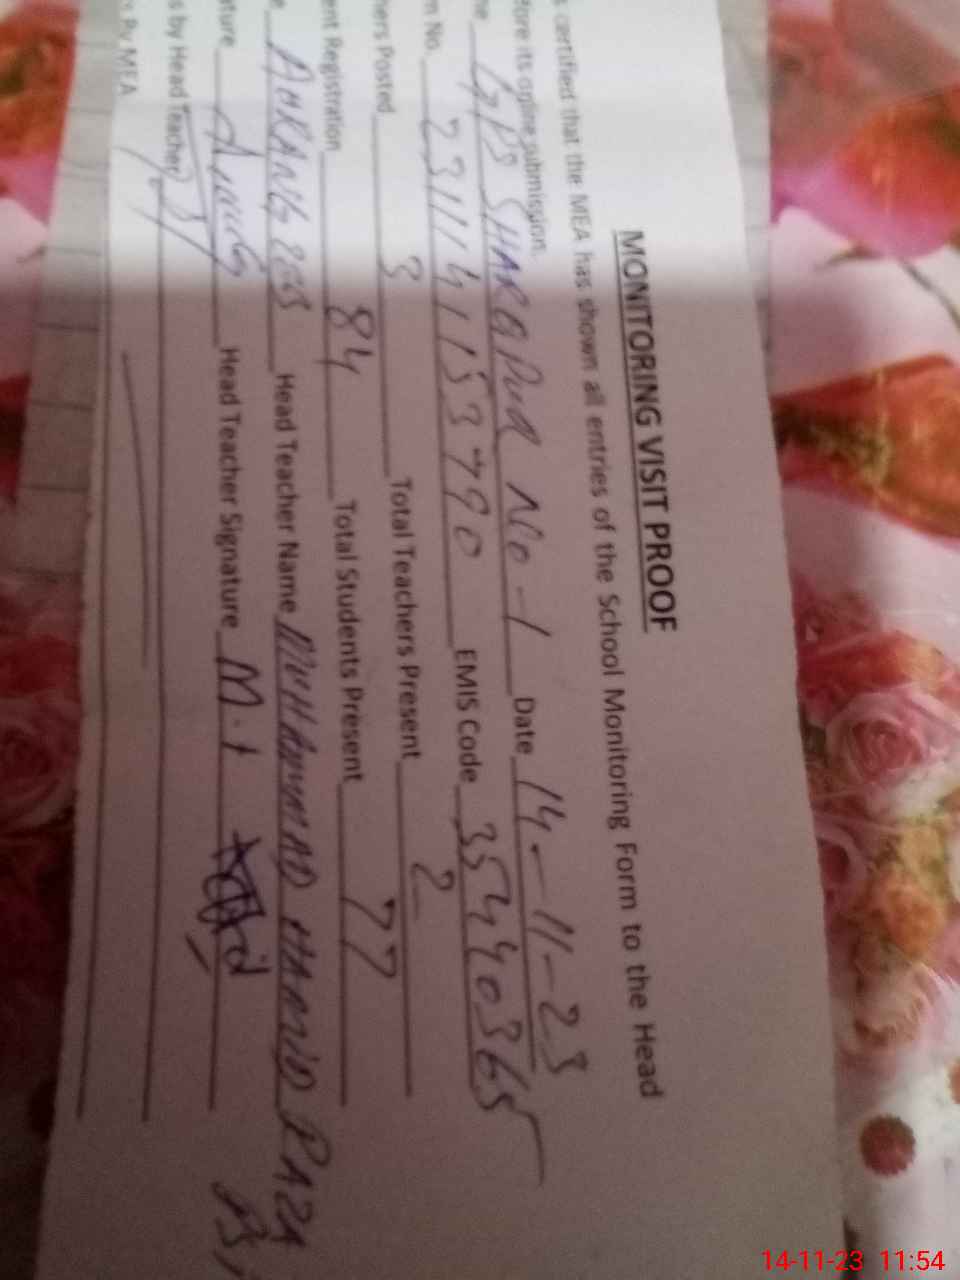 MONITORING VISIT PROOF
certified that the MEA has shown all entries of the School Monitoring Form to the Head
fore its online submission.
me GPS SHARQPUR No-1 Date 14-11-23
m No. 2311141153790 EMIS Code 35440365
hers Posted 3 Total Teachers Present 2
ent Registration 84 Total Students Present 77
e AURANGZEB Head Teacher Name MUHAMMAD HAMID RAZA
ature Head Teacher Signature
s by Head Teacher
s By MEA
14-11-23 11:54